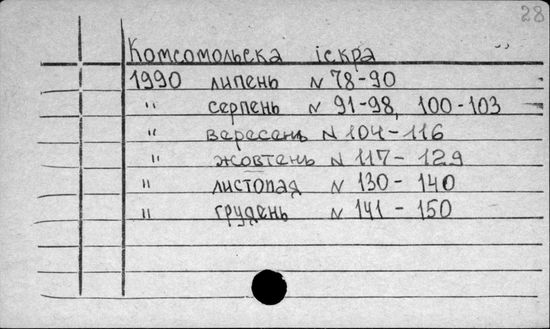 28
Комсомольска іскра
1990 липень N 78-90
" серпень N 91-98, 100-103
" вересень N 104-116
" жовтень N 117-129
" листопад N 130-140
" грудень N 141-150